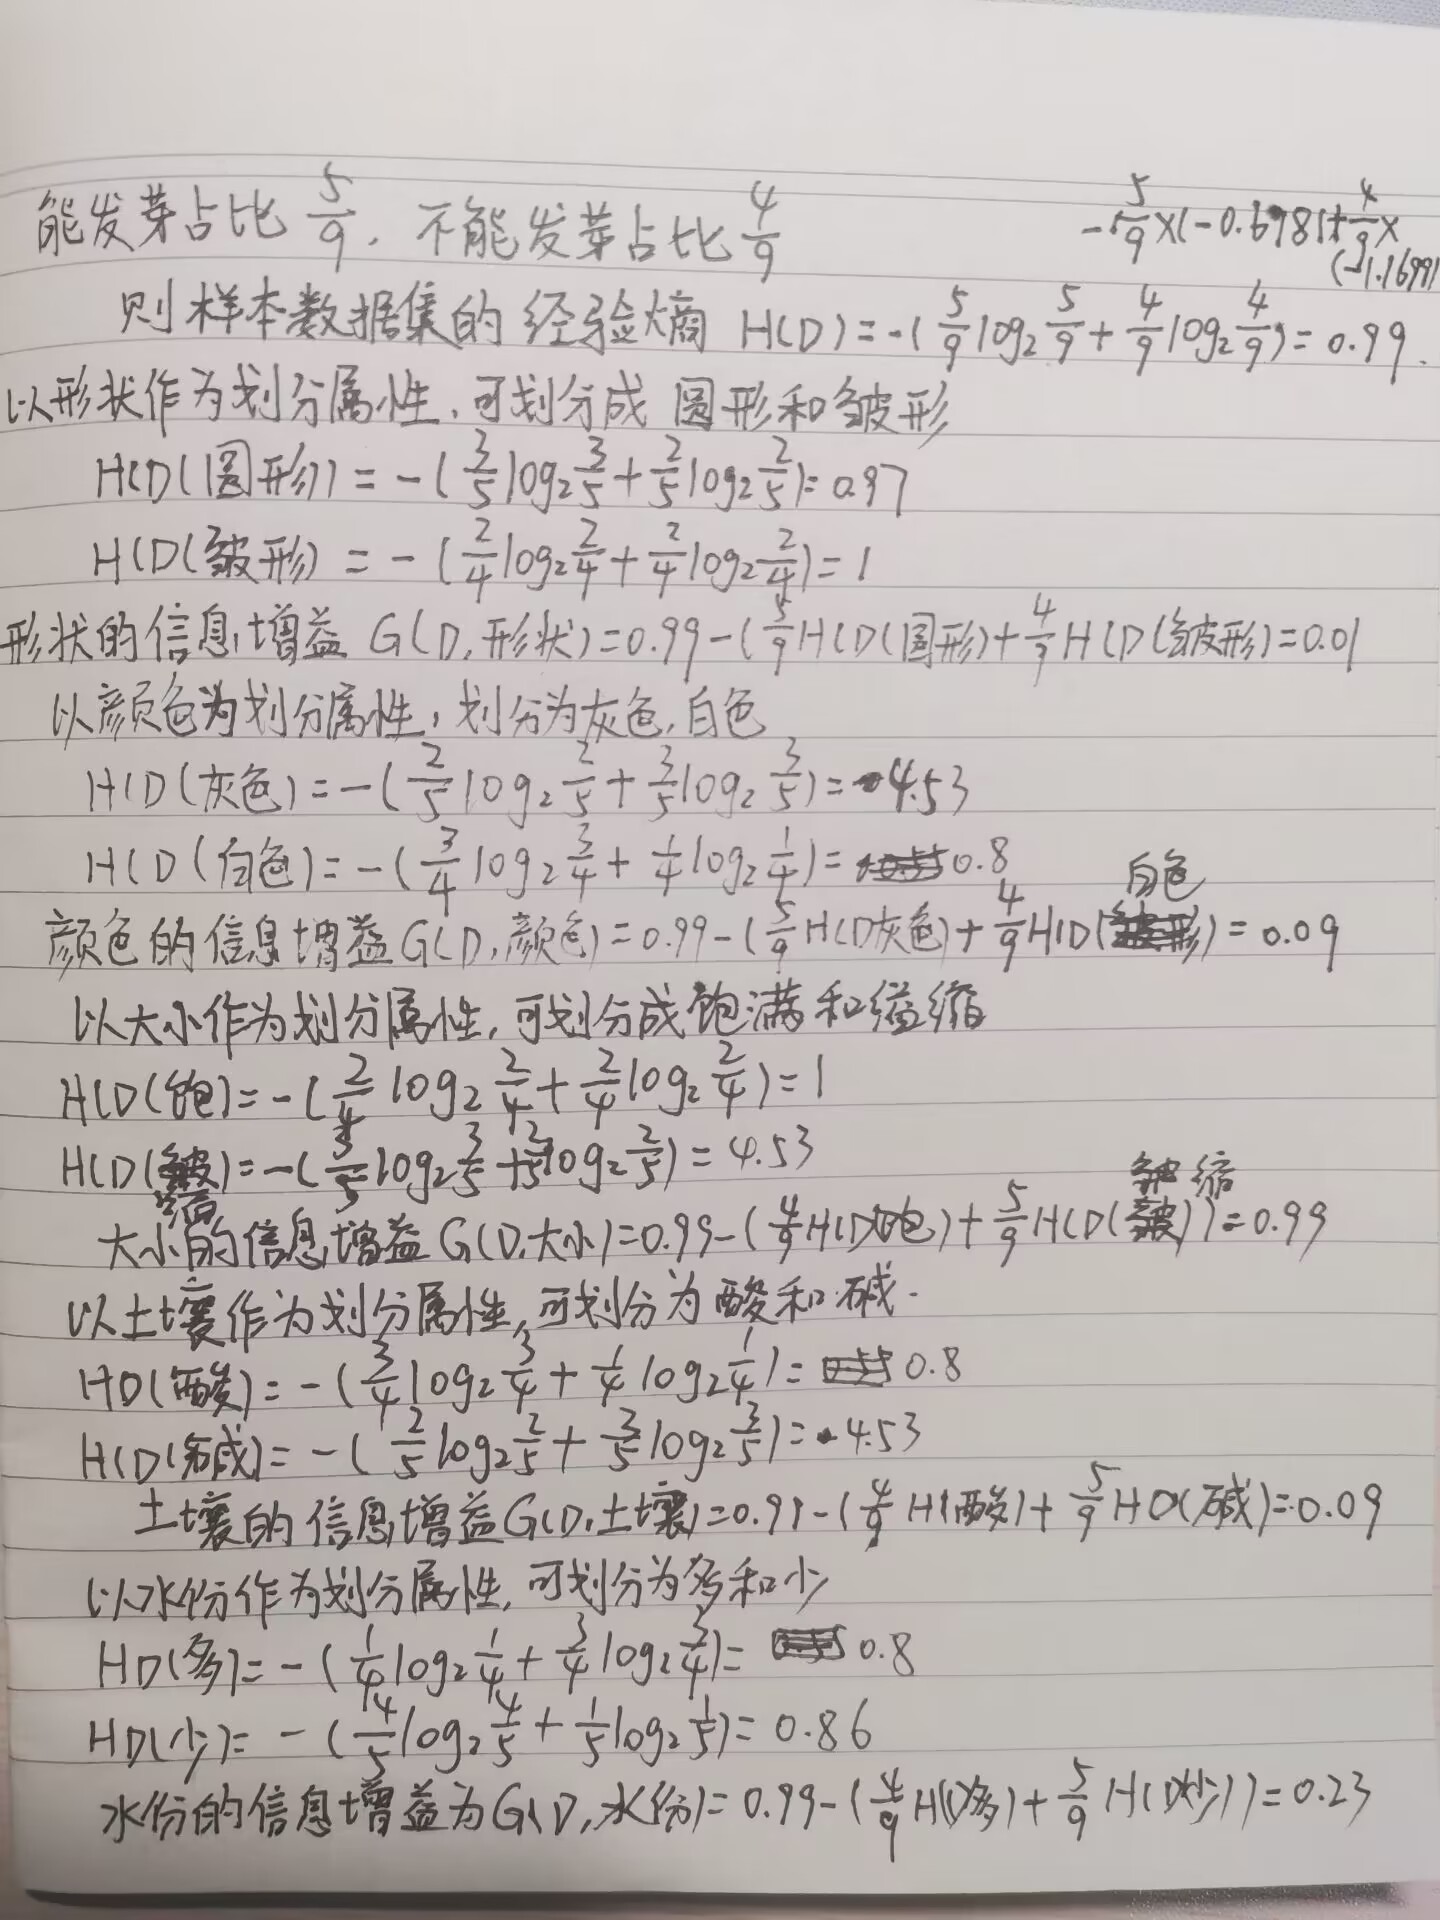 能发芽占比 5/9, 不能发芽占比 4/9
-5/9×(-0.6781+4/9×
(-1.1699)
则样本数据集的经验熵 H(D)=-(5/9log₂5/9+4/9log₂4/9)=0.99.
以形状作为划分属性,可划分成 圆形和皱形
H(D(圆形))=-(3/5log₂3/5+2/5log₂2/5)=0.97
H(D(皱形)=-(2/4log₂2/4+2/4log₂2/4)=1
形状的信息增益 G(D,形状)=0.99-(5/9H(D(圆形)+4/9H(D(皱形)=0.01
以颜色为划分属性,划分为灰色,白色
H(D(灰色)=-(2/5log₂2/5+3/5log₂3/5)=4.53
H(D(白色)=-(3/4log₂3/4+1/4log₂1/4)=0.8
颜色的信息增益G(D,颜色)=0.99-(5/9H(D灰色)+4/9H(D(白色)=0.09
以大小作为划分属性,可划分成饱满和缢缩
H(D(饱)=-(2/4log₂2/4+2/4log₂2/4)=1
H(D(皱缩)=-(3/5log₂3/5+2/5log₂2/5)=4.53
大小的信息增益G(D,大小)=0.99-(4/9H(D饱)+5/9H(D(皱缩))=0.99
以土壤作为划分属性,可划分为酸和碱.
HD(酸)=-(3/4log₂3/4+1/4log₂1/4)=0.8
H(D(碱)=-(2/5log₂2/5+3/5log₂3/5)=4.53
土壤的信息增益G(D,土壤)=0.99-(4/9H(酸)+5/9HD(碱)=0.09
以水份作为划分属性,可划分为多和少
HD(多)=-(1/4log₂1/4+3/4log₂3/4)=0.8
HD(少)=-(4/5log₂4/5+1/5log₂1/5)=0.86
水份的信息增益为G(D,水份)=0.99-(4/9H(D多)+5/9H(D少))=0.23